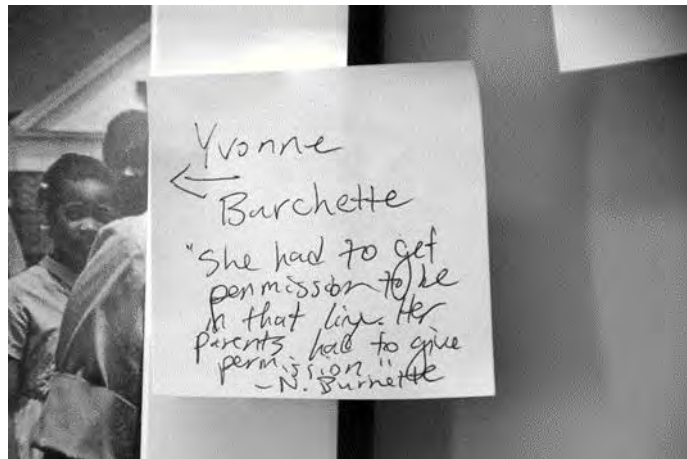 Yvonne
Burchette
"She had to get
permission to be
in that line. Her
parents had to give
permission."
-N. Burnette